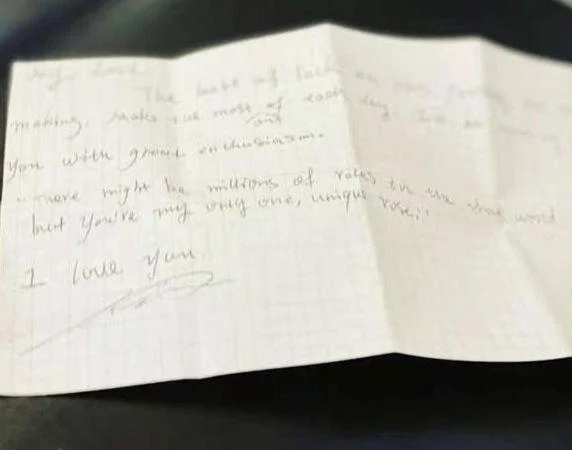 My love
The best of
making. Make the most of each day.
out
you with great enthusiasm.
"There might be millions of roses in the whole world
but you're my only one, unique rose."
I love you.